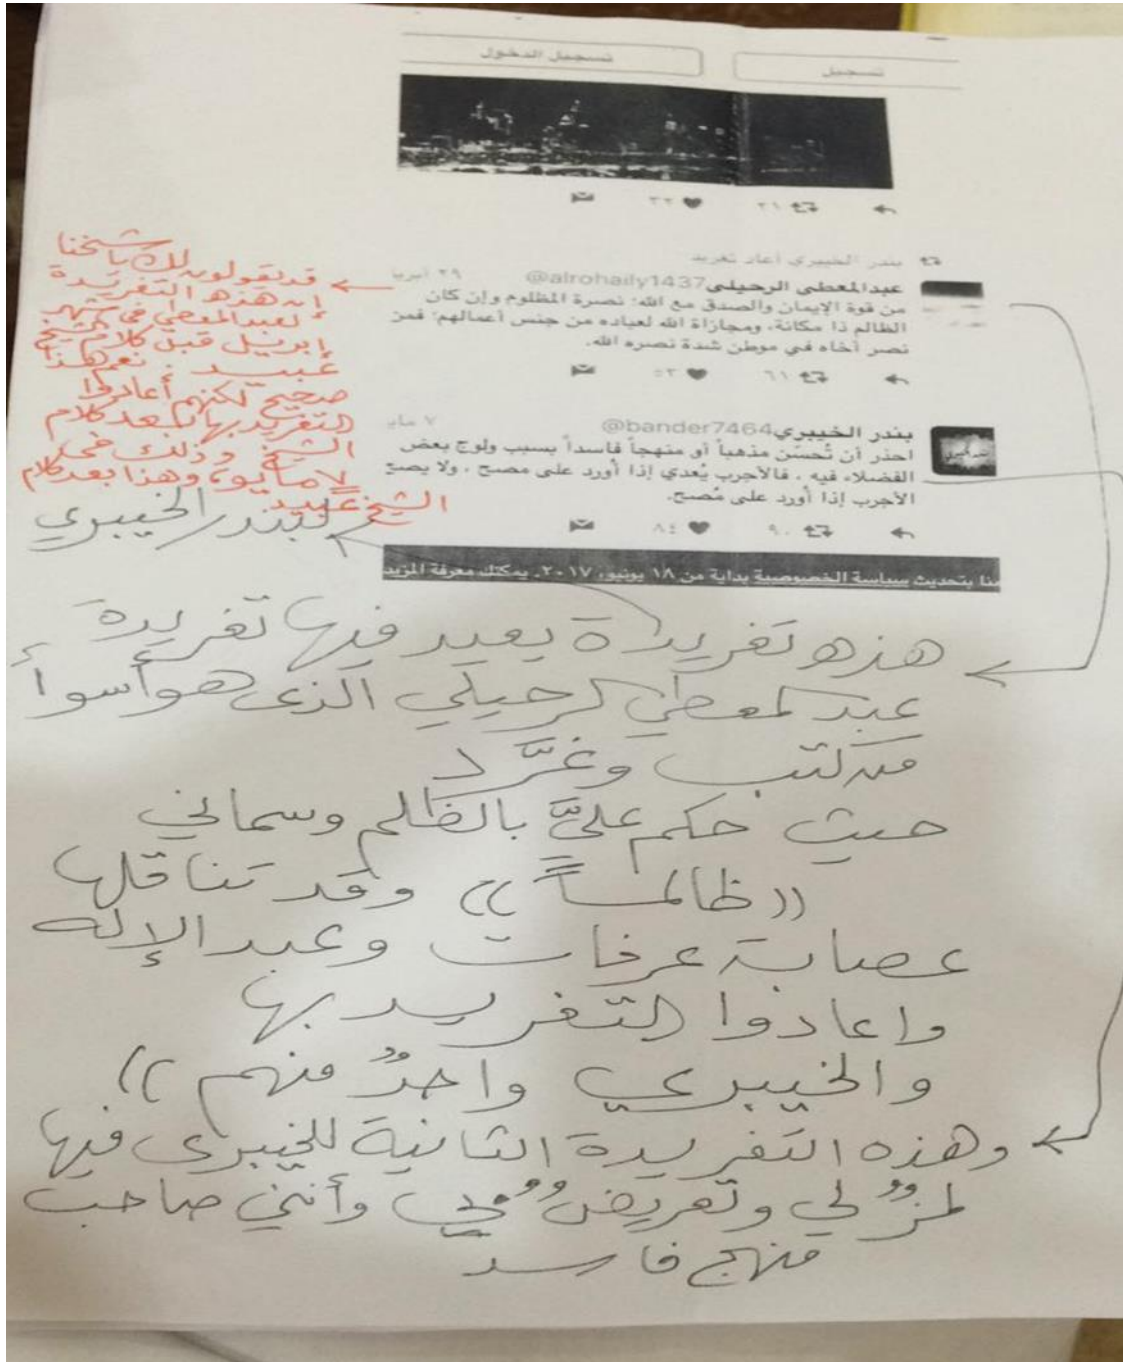 تسجيل
تسجيل الدخول
٢١
٣٢
بندر الخيبري أعاد تغريد
عبدالمعطي الرحيلي @alrohaily1437
٢٩ أبريل
من قوة الإيمان والصدق مع الله: نصرة المظلوم وإن كان
الظالم ذا مكانة، ومجازاة الله لعباده من جنس أعمالهم؛ فمن
نصر أخاه في موطن شدة نصره الله.
٦١
٥٣
بندر الخيبري @bander7464
٧ مايو
احذر أن تُحسّن مذهباً أو منهجاً فاسداً بسبب ولوج بعض
الفضلاء فيه ، فالأجرب يُعدي إذا أورد على مصح ، ولا يصح
الأجرب إذا أورد على مُصح.
٩٠
٨٤
منا بتحديث سياسة الخصوصية بداية من ١٨ يونيو، ٢٠١٧. يمكنك معرفة المزيد
قد يقولون لك يا شيخنا
إن هذه التغريدة
لعبدالمعطي في شهر
إبريل قبل كلام الشيخ
عبيد . نعم هذا
صحيح لكنهم أعادوا
التغريد بها بعد كلام
الشيخ وذلك في
٧ مايو، وهذا بعد كلام
الشيخ عبيد
لبندر الخيبري
هذه تغريدة يعيد فيها تغريدة
عبد المعطي الرحيلي الذي هو أسوأ
من كتب وغرَّد
حيث حكم عليَّ بالظلم وسماني
((ظالماً)) وقد تناقلها
عصابة عرفات وعبد الإله
واعادوا التغريد بها
والخيبري واحدٌ منهم ))
وهذه التغريدة الثانية للخيبري فيها
لمزٌ لي وتعريضٌ بي وأنني صاحب
منهج فاسد